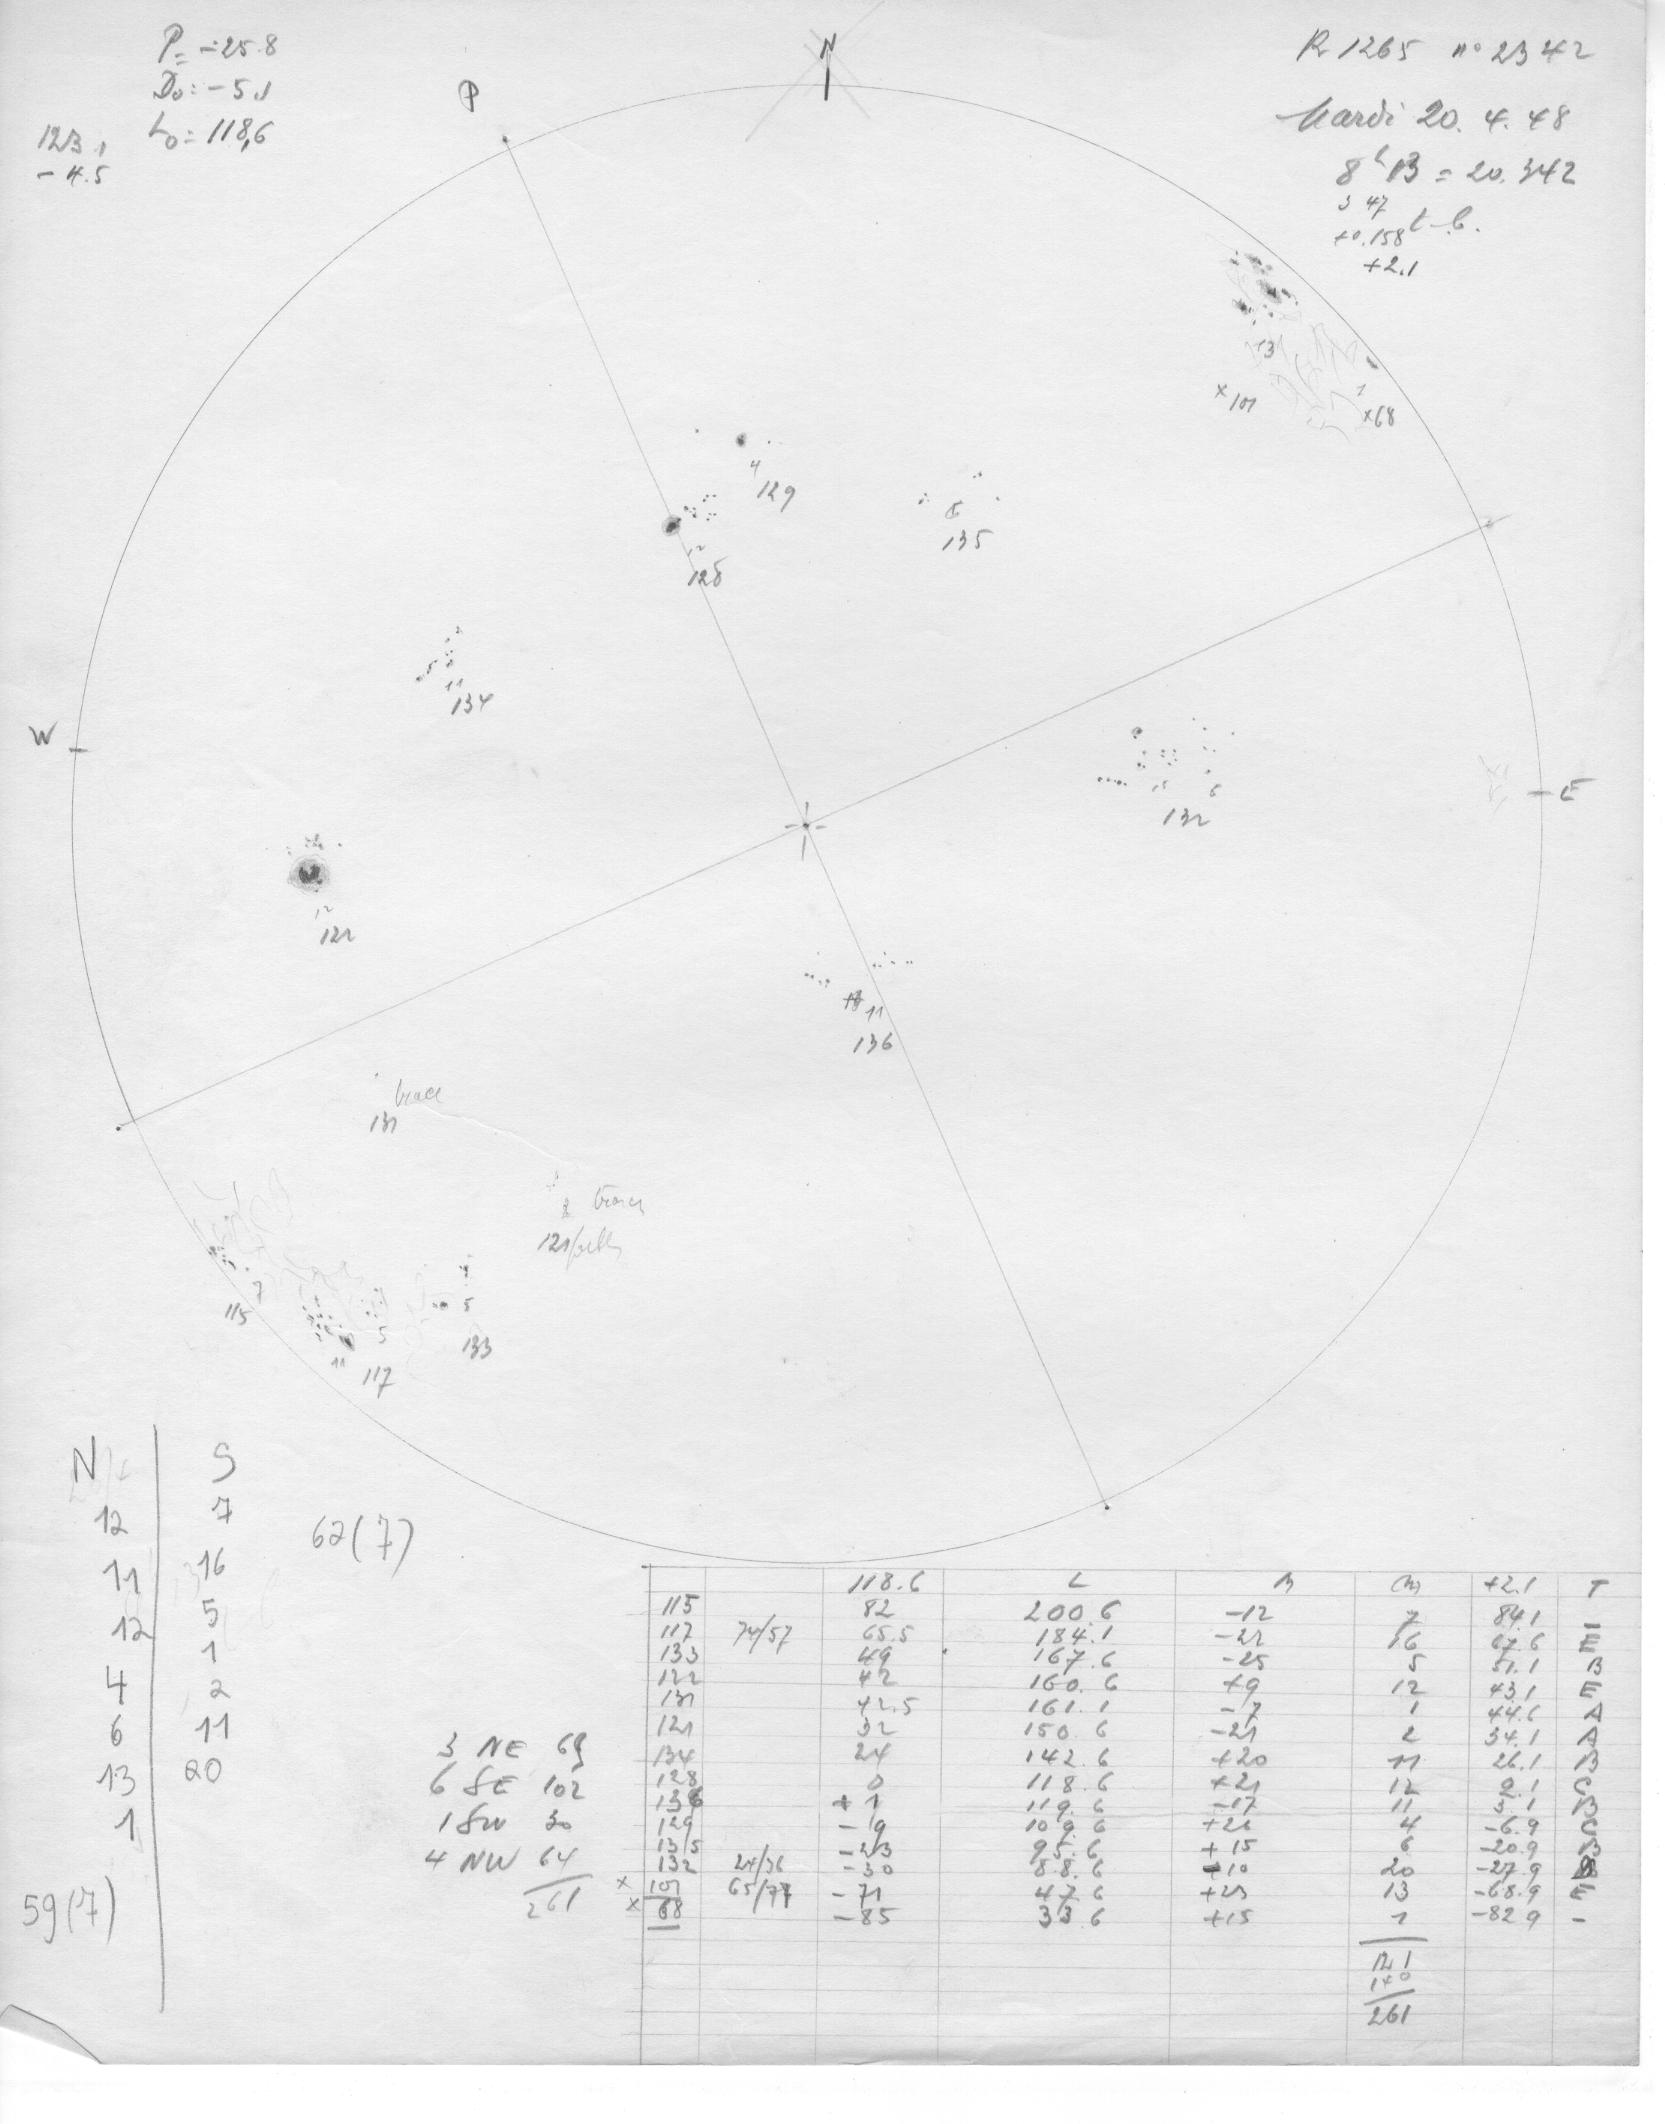 P= -25.8
D₀: -5.1
L₀= 118,6
123.1
-4.5
P
N
R 1265 n° 2342
Mardi 20. 4. 48
8ʰ13 = 20.342
3 47
+0.158 t-b.
+2.1
13
x 101
1
x 68
4
129
12
128
6
135
5
11
134
W
E
15
6
132
12
122
11
136
trace
131
2 traces
121 faibles
7
115
11
5
117
5
133
N
S
12 7
11 16
12 5
4 1
6 2
13 11
1 20
62(7)
59(7)
3 NE 69
6 SE 102
1 SW 30
4 NW 64
261
118.6 L B m +2.1 T
115 82 200.6 -12 7 84.1 -
117 74/57 65.5 184.1 -22 16 67.6 E
133 49 167.6 -25 5 51.1 B
122 42 160.6 +9 12 43.1 E
131 42.5 161.1 -7 1 44.6 A
121 32 150.6 -21 2 34.1 A
134 24 142.6 +20 11 26.1 B
128 0 118.6 +21 12 2.1 C
136 +1 119.6 -17 11 3.1 B
129 -9 109.6 +26 4 -6.9 C
135 -23 95.6 +15 6 -20.9 B
132 24/36 -30 88.6 -10 20 -27.9
x 101 65/77 -71 47.6 +23 13 -68.9 E
x 68 -85 33.6 +15 1 -82.9 -
121
140
261